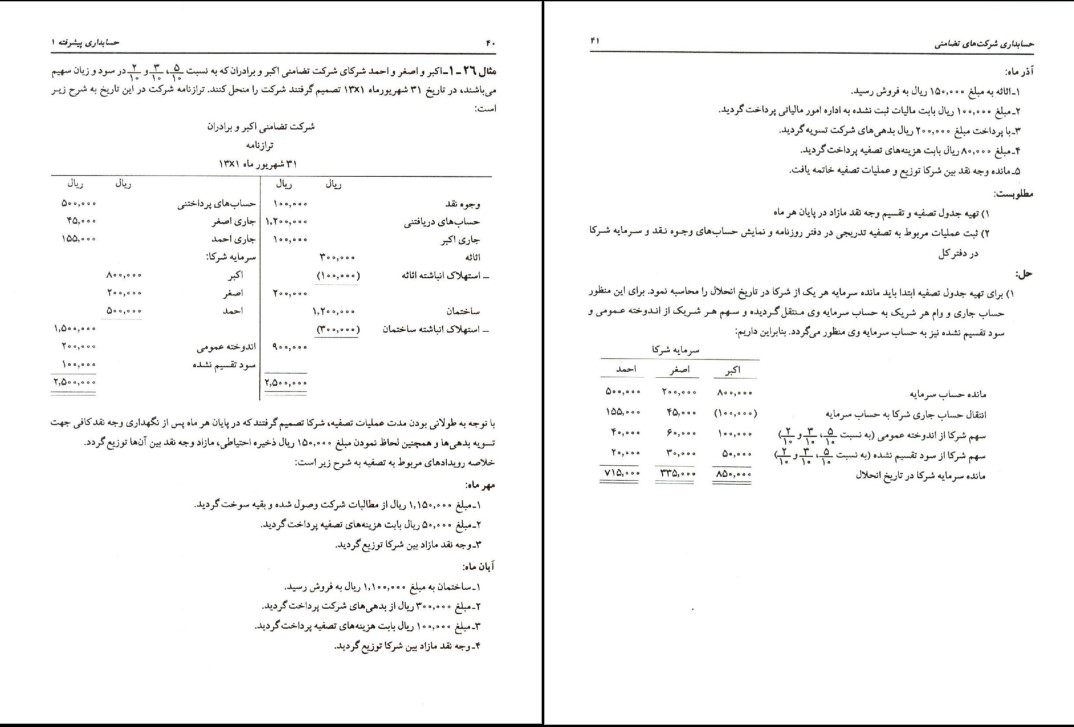 ۴۰ حسابداری پیشرفته ۱
مثال ۲۶ - ۱- اکبر و اصغر و احمد شرکای شرکت تضامنی اکبر و برادران که به نسبت ۵/۱۰، ۳/۱۰ و ۲/۱۰ در سود و زیان سهیم
می‌باشند، در تاریخ ۳۱ شهریورماه ۱۳X۱ تصمیم گرفتند شرکت را منحل کنند. ترازنامه شرکت در این تاریخ به شرح زیر
است:
شرکت تضامنی اکبر و برادران
ترازنامه
۳۱ شهریور ماه ۱۳X۱
ریال ریال ریال ریال
وجوه نقد ۱۰۰,۰۰۰ حساب‌های پرداختنی ۵۰۰,۰۰۰
حساب‌های دریافتنی ۱,۲۰۰,۰۰۰ جاری اصغر ۴۵,۰۰۰
جاری اکبر ۱۰۰,۰۰۰ جاری احمد ۱۵۵,۰۰۰
اثاثه ۳۰۰,۰۰۰ سرمایه شرکا:
- استهلاک انباشته اثاثه (۱۰۰,۰۰۰) اکبر ۸۰۰,۰۰۰
۲۰۰,۰۰۰ اصغر ۲۰۰,۰۰۰
ساختمان ۱,۲۰۰,۰۰۰ احمد ۵۰۰,۰۰۰
- استهلاک انباشته ساختمان (۳۰۰,۰۰۰) ۱,۵۰۰,۰۰۰
۹۰۰,۰۰۰ اندوخته عمومی ۲۰۰,۰۰۰
سود تقسیم نشده ۱۰۰,۰۰۰
۲,۵۰۰,۰۰۰ ۲,۵۰۰,۰۰۰
با توجه به طولانی بودن مدت عملیات تصفیه، شرکا تصمیم گرفتند که در پایان هر ماه پس از نگهداری وجه نقد کافی جهت
تسویه بدهی‌ها و همچنین لحاظ نمودن مبلغ ۱۵۰,۰۰۰ ریال ذخیره احتیاطی، مازاد وجه نقد بین آن‌ها توزیع گردد.
خلاصه رویدادهای مربوط به تصفیه به شرح زیر است:
مهر ماه:
۱ـ مبلغ ۱,۱۵۰,۰۰۰ ریال از مطالبات شرکت وصول شده و بقیه سوخت گردید.
۲ـ مبلغ ۵۰,۰۰۰ ریال بابت هزینه‌های تصفیه پرداخت گردید.
۳ـ وجه نقد مازاد بین شرکا توزیع گردید.
آبان ماه:
۱ـ ساختمان به مبلغ ۱,۱۰۰,۰۰۰ ریال به فروش رسید.
۲ـ مبلغ ۳۰۰,۰۰۰ ریال از بدهی‌های شرکت پرداخت گردید.
۳ـ مبلغ ۱۰۰,۰۰۰ ریال بابت هزینه‌های تصفیه پرداخت گردید.
۴ـ وجه نقد مازاد بین شرکا توزیع گردید.
حسابداری شرکت‌های تضامنی ۴۱
آذر ماه:
۱ـ اثاثه به مبلغ ۱۵۰,۰۰۰ ریال به فروش رسید.
۲ـ مبلغ ۱۰۰,۰۰۰ ریال بابت مالیات ثبت نشده به اداره امور مالیاتی پرداخت گردید.
۳ـ با پرداخت مبلغ ۲۰۰,۰۰۰ ریال بدهی‌های شرکت تسویه گردید.
۴ـ مبلغ ۸۰,۰۰۰ ریال بابت هزینه‌های تصفیه پرداخت گردید.
۵ـ مانده وجه نقد بین شرکا توزیع و عملیات تصفیه خاتمه یافت.
مطلوبست:
۱) تهیه جدول تصفیه و تقسیم وجه نقد مازاد در پایان هر ماه
۲) ثبت عملیات مربوط به تصفیه تدریجی در دفتر روزنامه و نمایش حساب‌های وجوه نقد و سرمایه شرکا
در دفتر کل
حل:
۱) برای تهیه جدول تصفیه ابتدا باید مانده سرمایه هر یک از شرکا در تاریخ انحلال را محاسبه نمود. برای این منظور
حساب جاری و وام هر شریک به حساب سرمایه وی منتقل گردیده و سهم هر شریک از اندوخته عمومی و
سود تقسیم نشده نیز به حساب سرمایه وی منظور می‌گردد. بنابراین داریم:
سرمایه شرکا
اکبر اصغر احمد
مانده حساب سرمایه ۸۰۰,۰۰۰ ۲۰۰,۰۰۰ ۵۰۰,۰۰۰
انتقال حساب جاری شرکا به حساب سرمایه (۱۰۰,۰۰۰) ۴۵,۰۰۰ ۱۵۵,۰۰۰
سهم شرکا از اندوخته عمومی (به نسبت ۵/۱۰، ۳/۱۰ و ۲/۱۰) ۱۰۰,۰۰۰ ۶۰,۰۰۰ ۴۰,۰۰۰
سهم شرکا از سود تقسیم نشده (به نسبت ۵/۱۰، ۳/۱۰ و ۲/۱۰) ۵۰,۰۰۰ ۳۰,۰۰۰ ۲۰,۰۰۰
مانده سرمایه شرکا در تاریخ انحلال ۸۵۰,۰۰۰ ۳۳۵,۰۰۰ ۷۱۵,۰۰۰